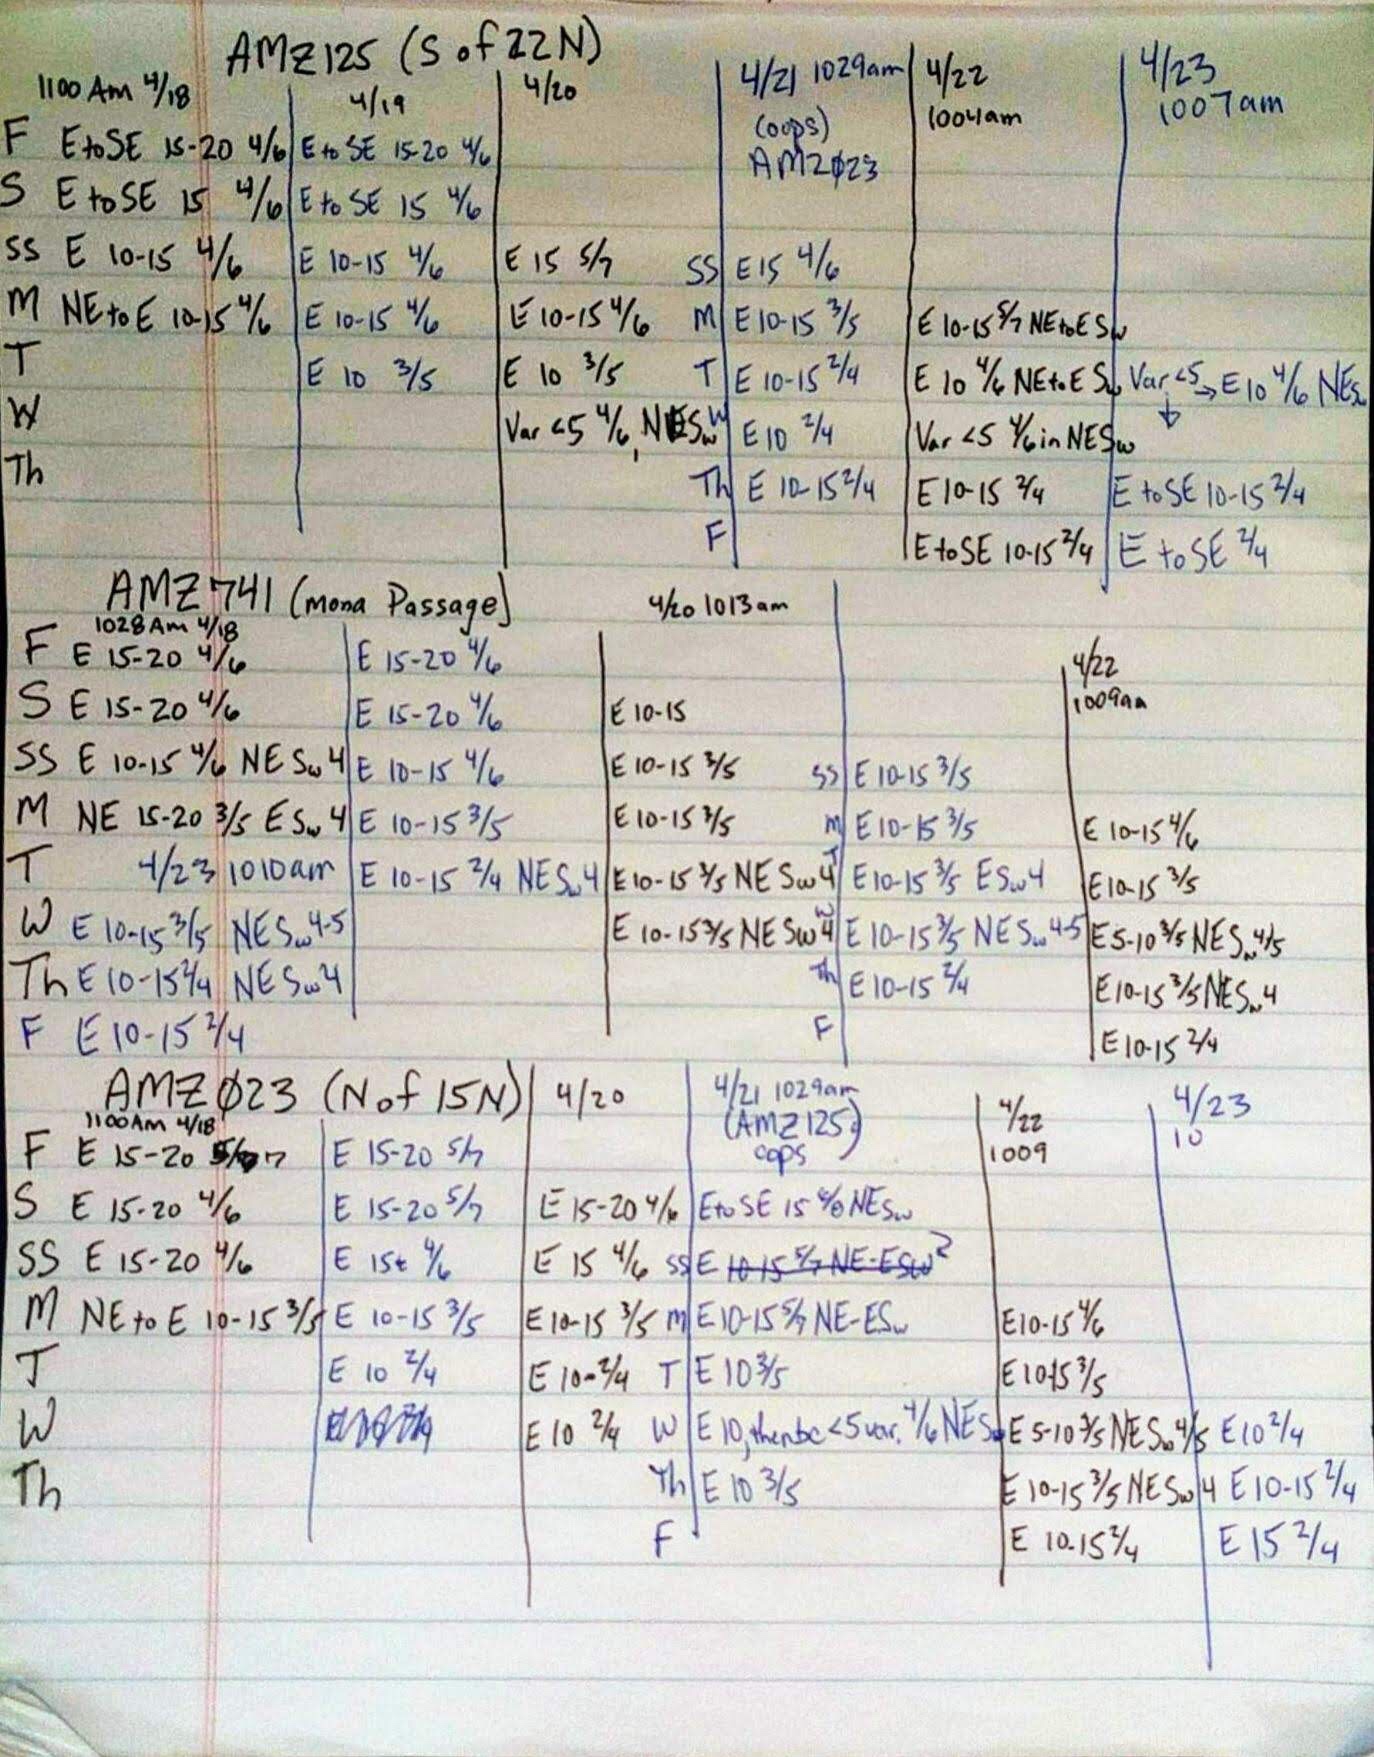 AMZ125 (S of 22N)
1100 Am 4/18 4/19 4/20 4/21 1029am 4/22 4/23
(oops) 1004am 1007am
AMZØ23
F E to SE 15-20 4/6 E to SE 15-20 4/6
S E to SE 15 4/6 E to SE 15 4/6
SS E 10-15 4/6 E 10-15 4/6 E 15 5/7 SS E15 4/6
M NE to E 10-15 4/6 E 10-15 4/6 E 10-15 4/6 M E10-15 3/5 E 10-15 5/7 NE to E Sw
T E 10 3/5 E 10 3/5 T E 10-15 2/4 E 10 4/6 NE to E Sw Var <5 → E 10 4/6 NESw
W Var <5 4/6, NESw W E10 2/4 Var <5 4/6 in NESw ↓
Th Th E 10-15 2/4 E10-15 2/4 E to SE 10-15 2/4
F E to SE 10-15 2/4 E to SE 2/4
AMZ741 (Mona Passage) 4/20 1013am
1028Am 4/18 4/22
1009am
F E 15-20 4/6 E 15-20 4/6
S E 15-20 4/6 E 15-20 4/6 E 10-15
SS E 10-15 4/6 NESw4 E 10-15 4/6 E 10-15 3/5 SS E10-15 3/5
M NE 15-20 3/5 ESw4 E 10-15 3/5 E 10-15 3/5 M E10-15 3/5 E 10-15 4/6
T 4/23 1010am E 10-15 2/4 NESw4 E10-15 3/5 NESw4 T E10-15 3/5 ESw4 E10-15 3/5
W E 10-15 3/5 NESw4-5 E 10-15 3/5 NESw4 W E 10-15 3/5 NESw4-5 E5-10 3/5 NESw4/5
Th E 10-15 2/4 NESw4 Th E10-15 2/4 E10-15 3/5 NESw4
F E 10-15 2/4 F E10-15 2/4
AMZØ23 (N of 15N) 4/20 4/21 1029am 4/22 4/23
1100Am 4/18 (AMZ125) 1009 10
oops
F E 15-20 5/7 E 15-20 5/7
S E 15-20 4/6 E 15-20 5/7 E 15-20 4/6 E to SE 15 NESw
SS E 15-20 4/6 E 15 4/6 E 15 4/6 SS E 10-15 5/7 NE-ESw ?
M NE to E 10-15 3/5 E 10-15 3/5 E10-15 3/5 M E10-15 5/7 NE-ESw E10-15 4/6
T E 10 2/4 E 10-2/4 T E 10 3/5 E10-15 3/5
W E10 2/4 W E10, then bc <5 var. 4/6 NESw E 5-10 3/5 NESw4/5 E10 2/4
Th Th E 10 3/5 E 10-15 3/5 NESw4 E10-15 2/4
F E 10-15 2/4 E 15 2/4